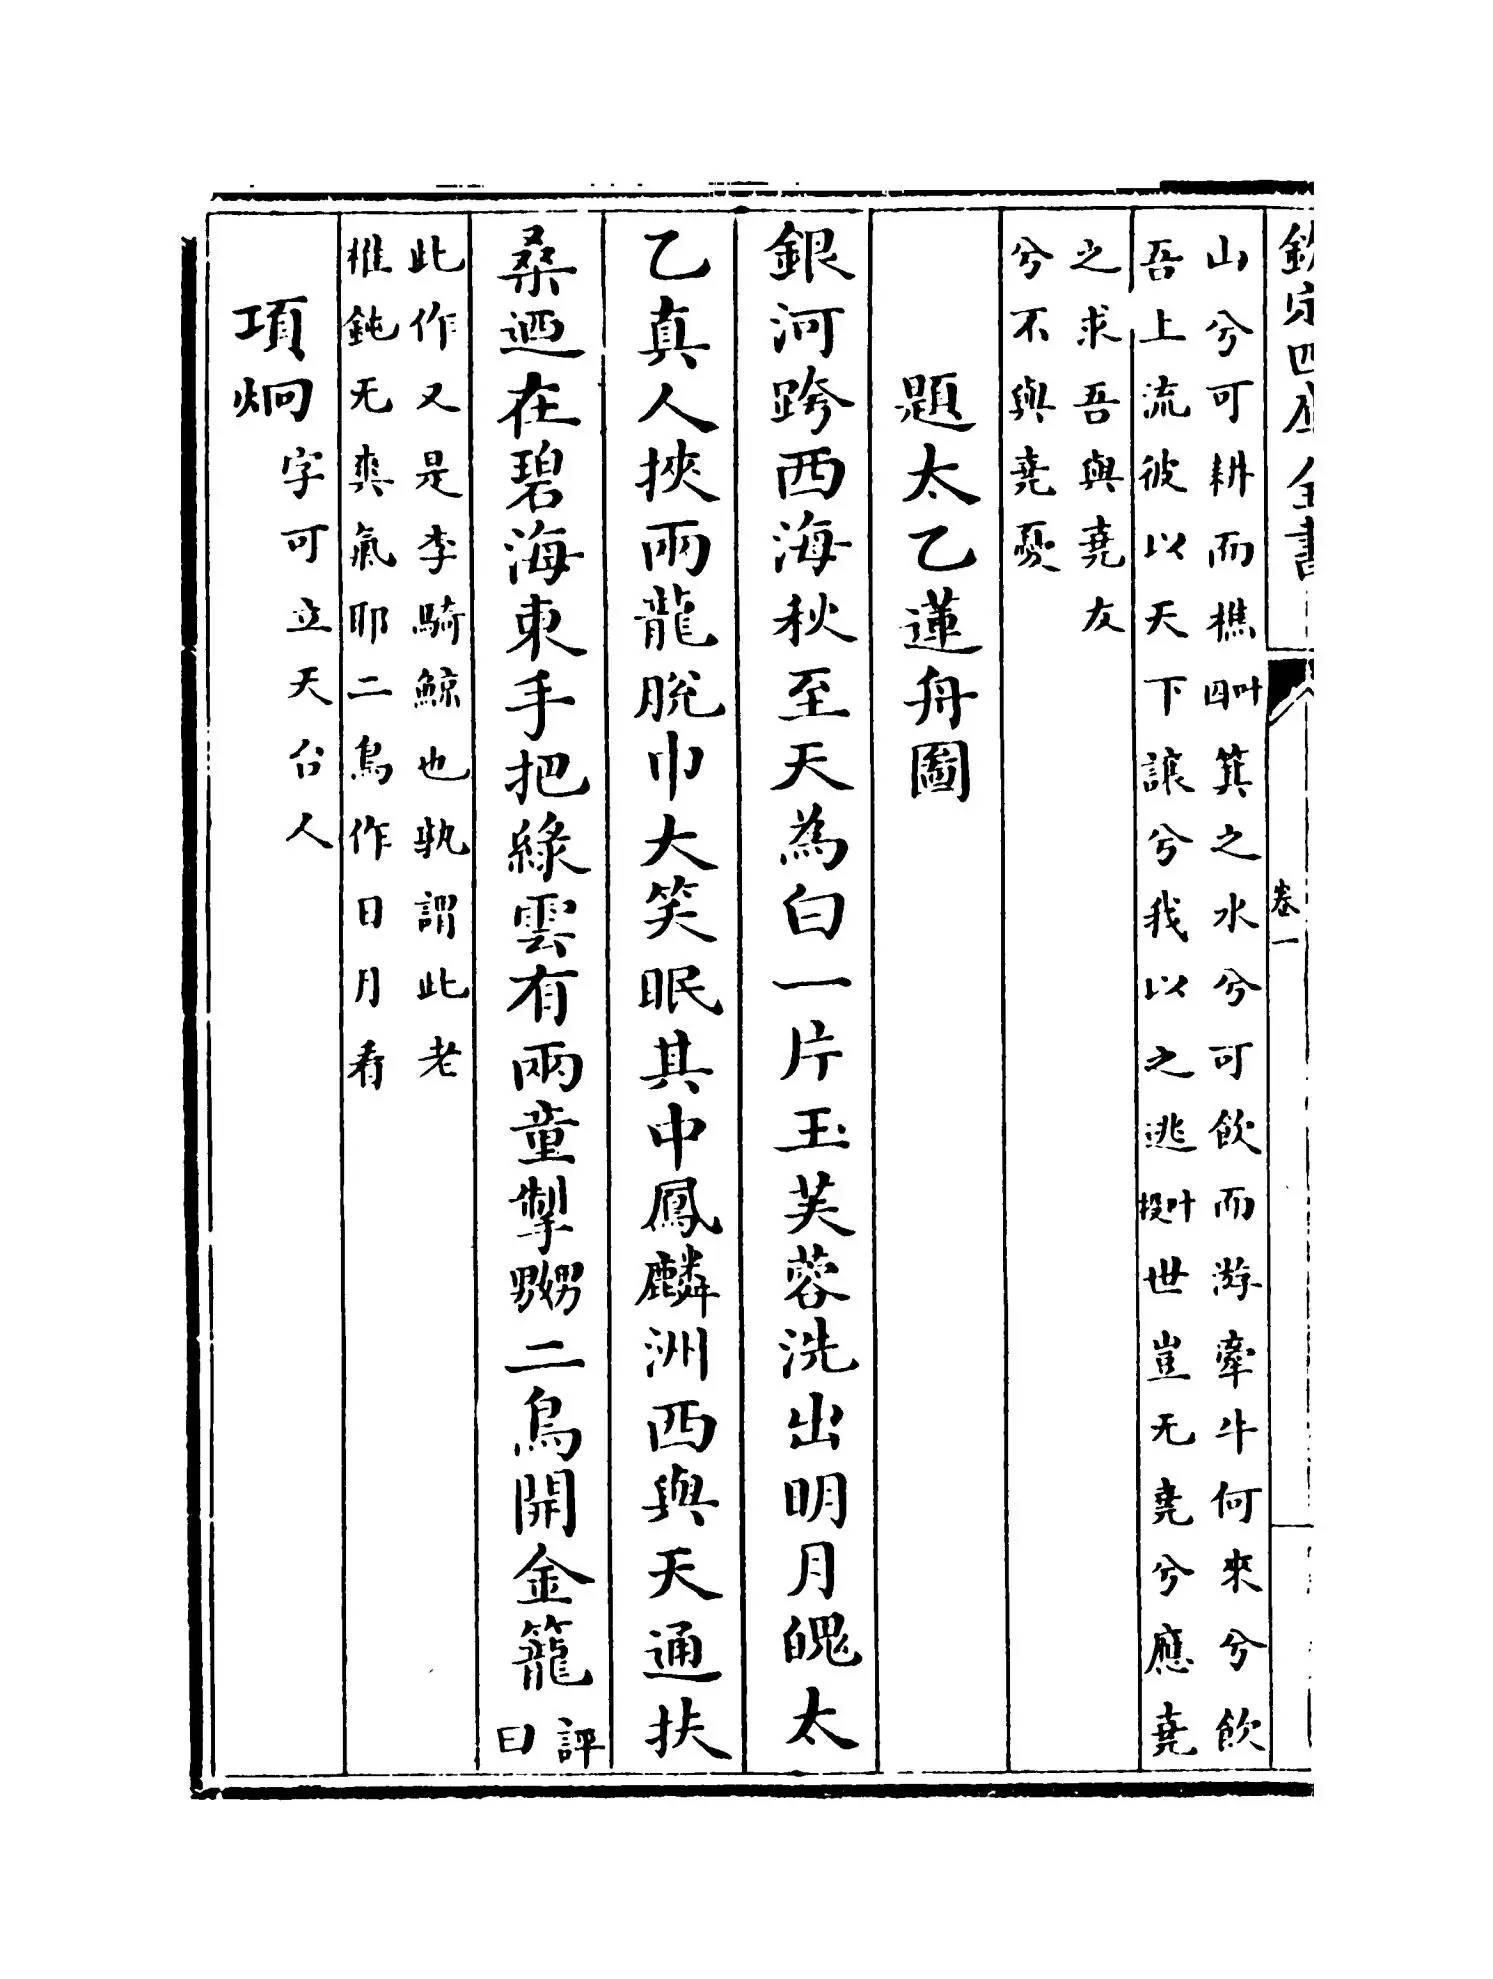 欽定四庫全書
卷一
山兮可耕而樵叶囚箕之水兮可飲而游牽牛何來兮飲
吾上流彼以天下讓兮我以之逃叶投世豈无堯兮應堯
之求吾與堯友
兮不與堯憂
題太乙蓮舟圖
銀河跨西海秋至天為白一片玉芙蓉洗出明月魄太
乙真人挾兩龍脫巾大笑眠其中鳳麟洲西與天通扶
桑迺在碧海東手把綠雲有兩童掣嬲二鳥開金籠評曰
此作又是李騎鯨也孰謂此老
椎鈍无爽氣耶二鳥作日月看
項炯字可立天台人